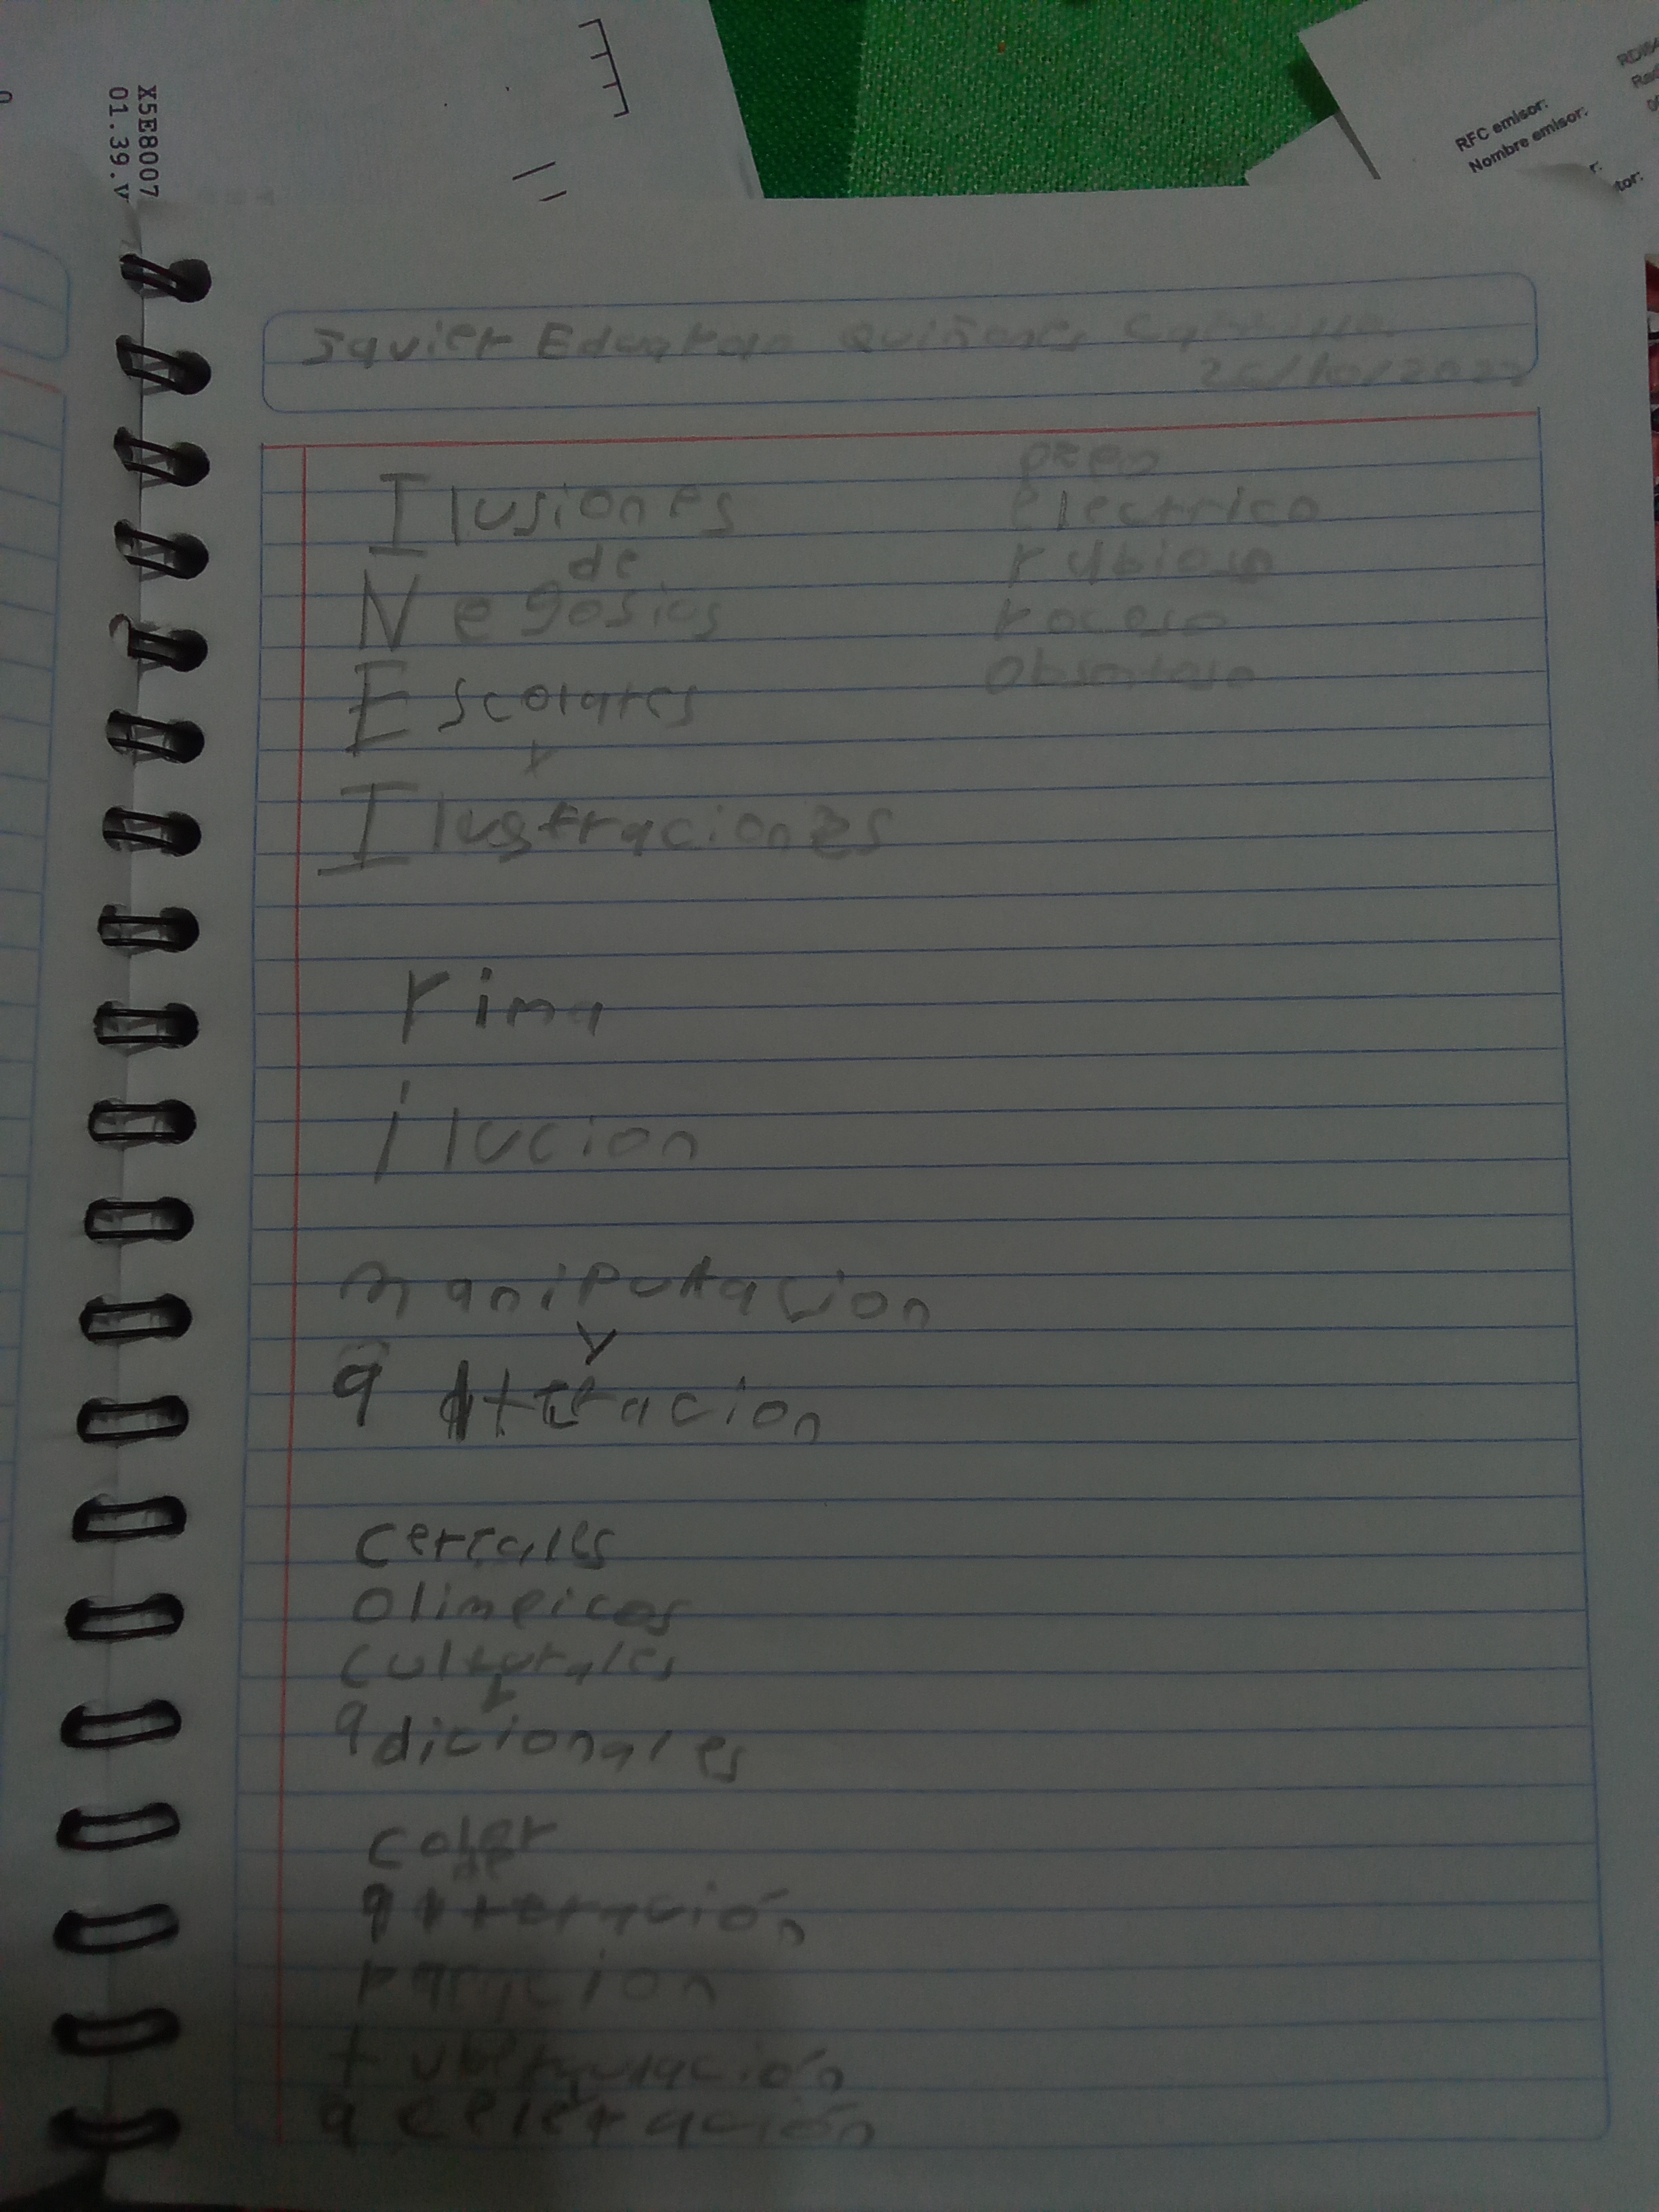 X5E8007
01.39.V
RFC emisor:
Nombre emisor:
Javier Eduardo Quiñones
Ilusiones
de
Negosios
Escolares
y
Ilustraciones
electrico
rubioso
roceso
rima
ilucion
manipulacion
y
alteracion
cereales
olimpicos
culturales
y
adicionales
color
de
alteración
paracion
aceleración